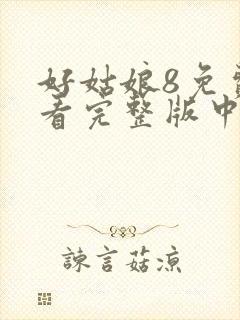 好姑娘8免费
看完整版中
諫言菇凉